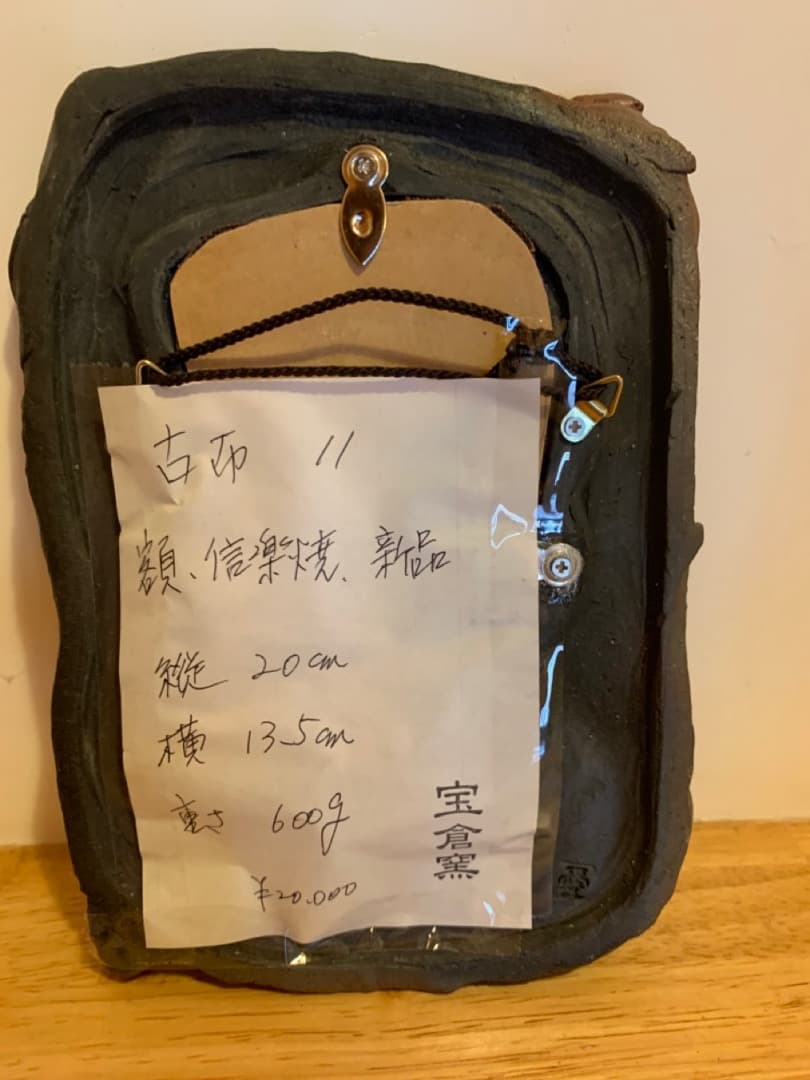 古布 11
額、信楽焼、新品
縦 20cm
横 13.5cm
重さ 600g
¥20.000
宝倉窯